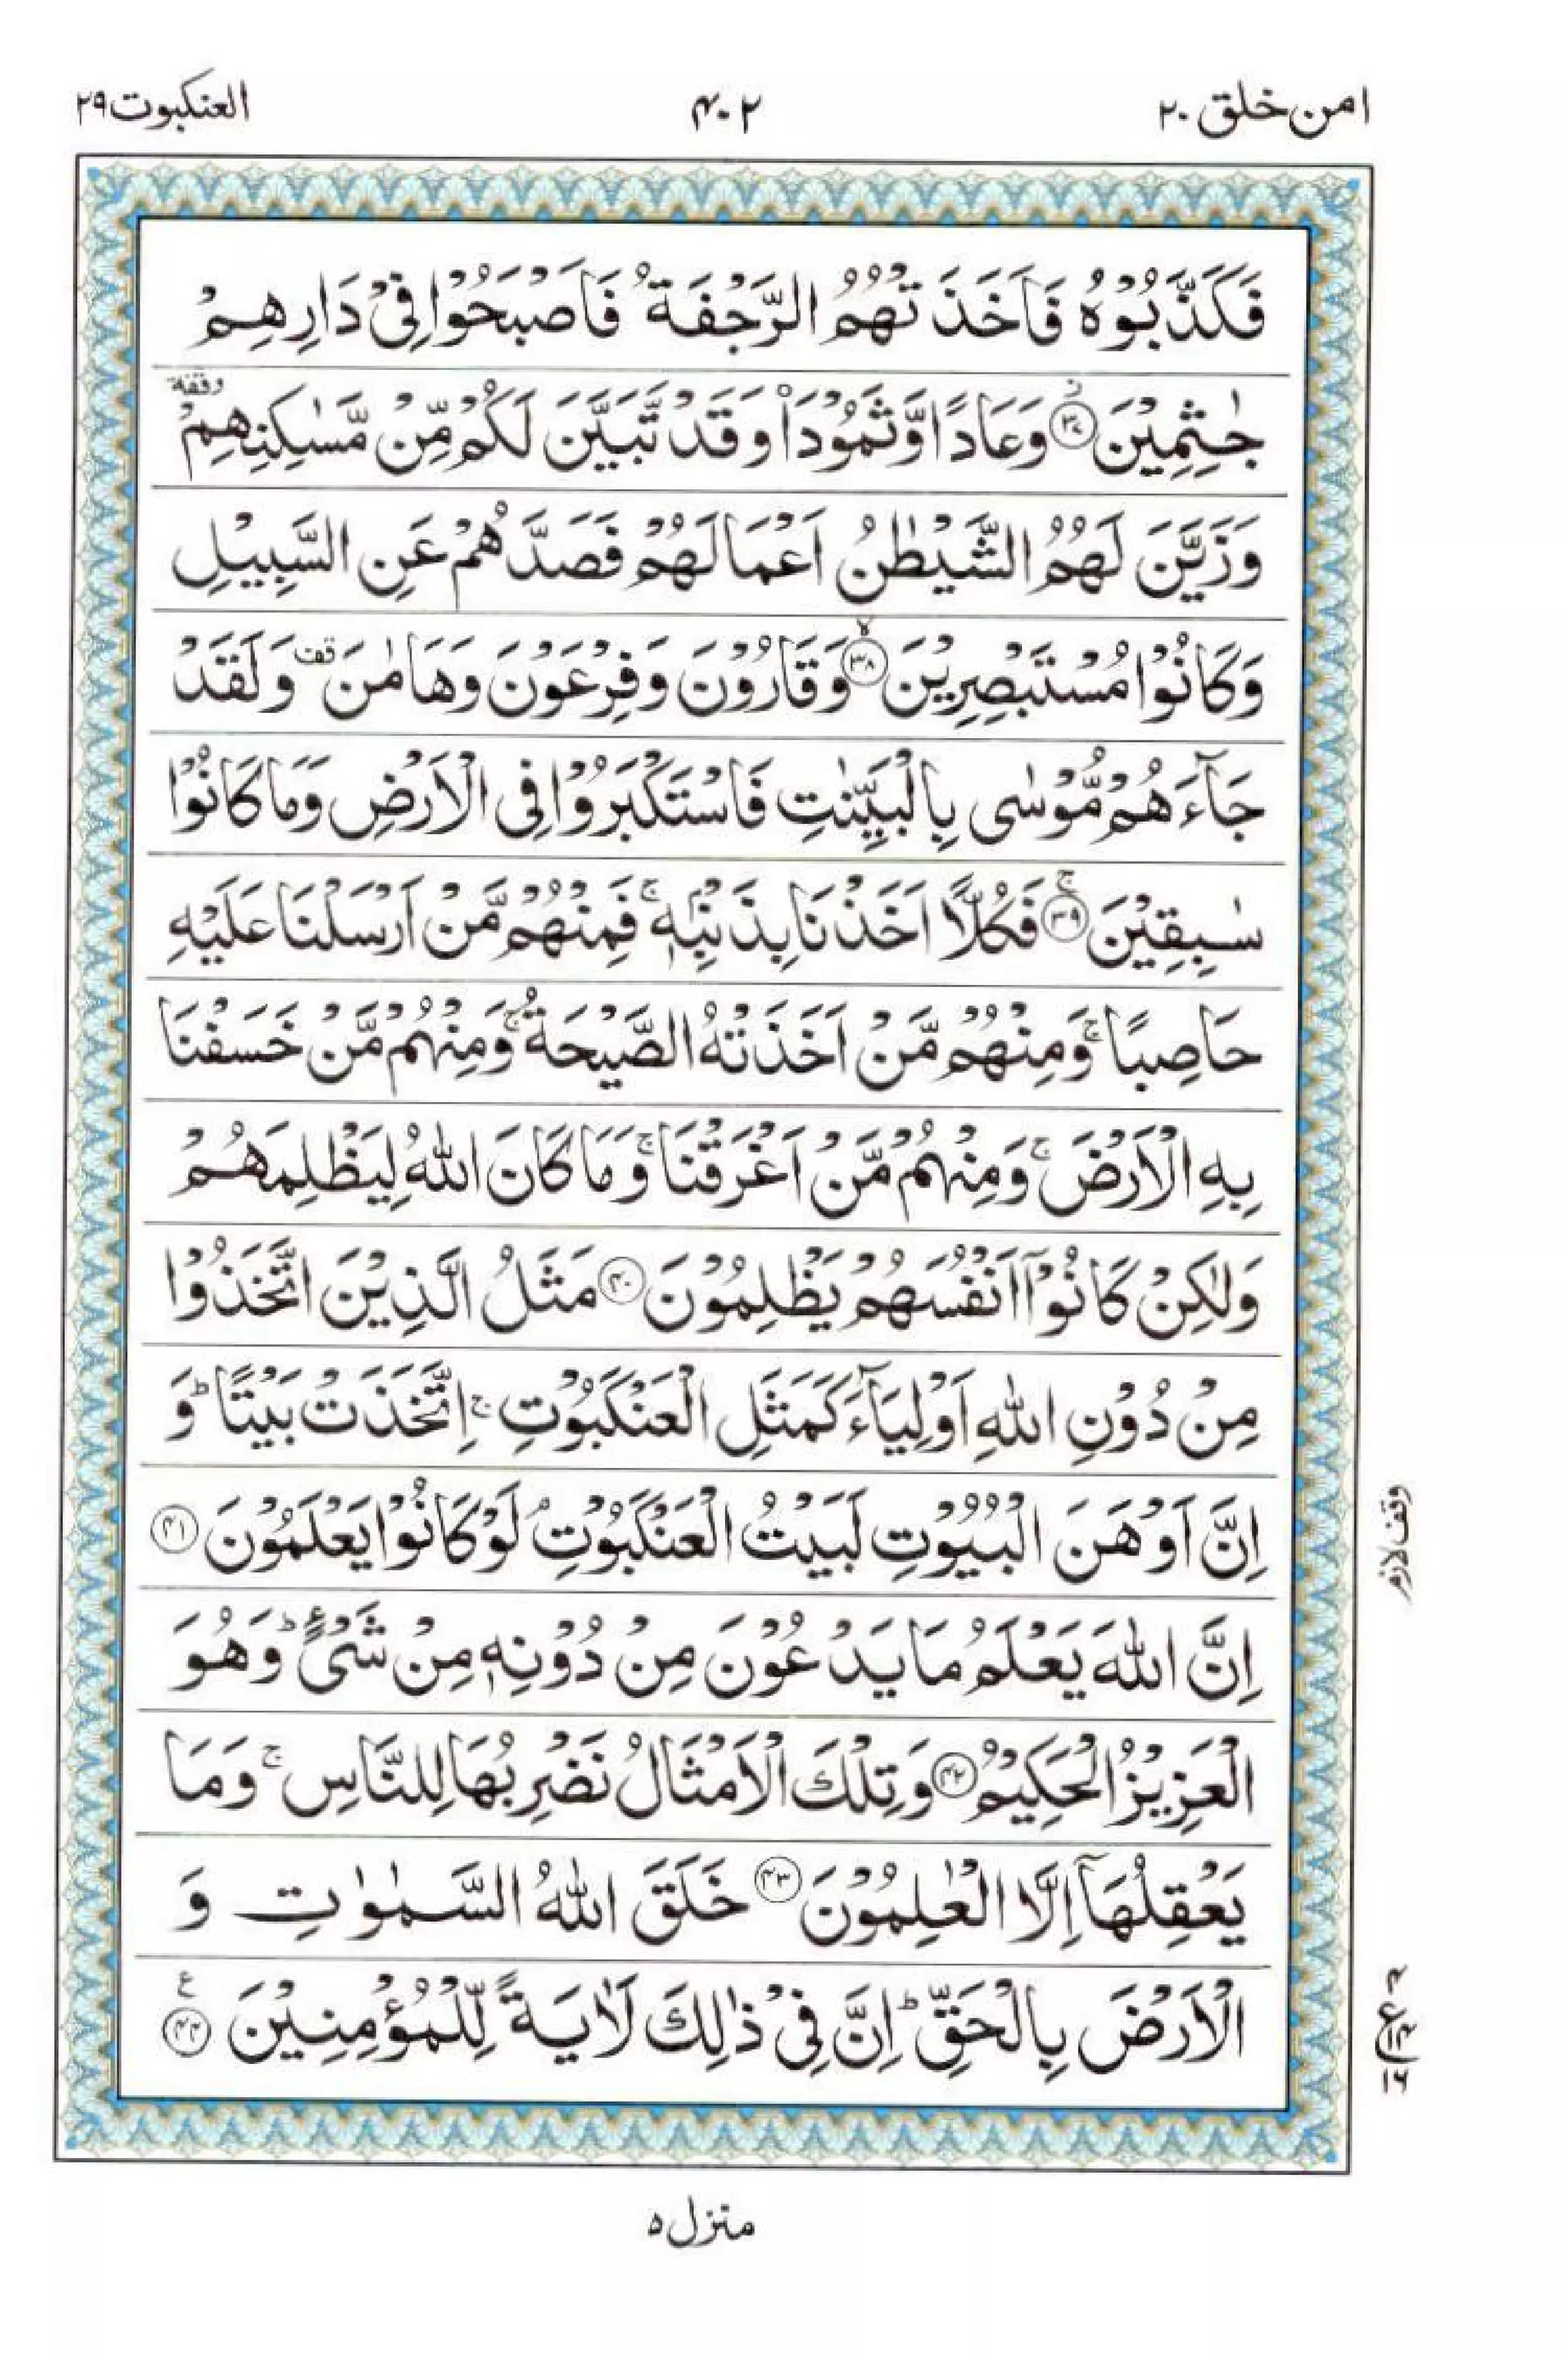 امن خلق ۲۰
۴۰۲
العنكبوت ۲۹
فَكَذَّبُوْهُ فَاَخَذَتْهُمُ الرَّجْفَةُ فَاَصْبَحُوْا فِیْ دَارِهِمْ
جٰثِمِیْنَ ﴿۳۷﴾ز وَعَادًا وَّثَمُوْدَا۠ وَقَدْ تَّبَیَّنَ لَكُمْ مِّنْ مَّسٰكِنِهِمْ وقفة
وَزَیَّنَ لَهُمُ الشَّیْطٰنُ اَعْمَالَهُمْ فَصَدَّهُمْ عَنِ السَّبِیْلِ
وَكَانُوْا مُسْتَبْصِرِیْنَ ﴿۳۸﴾ۙ وَقَارُوْنَ وَفِرْعَوْنَ وَهَامٰنَ قف وَلَقَدْ
جَآءَهُمْ مُّوْسٰی بِالْبَیِّنٰتِ فَاسْتَكْبَرُوْا فِی الْاَرْضِ وَمَا كَانُوْا
سٰبِقِیْنَ ﴿۳۹﴾ۚ فَكُلًّا اَخَذْنَا بِذَنْۢبِهٖ ۚ فَمِنْهُمْ مَّنْ اَرْسَلْنَا عَلَیْهِ
حَاصِبًا ۚ وَمِنْهُمْ مَّنْ اَخَذَتْهُ الصَّیْحَةُ ۚ وَمِنْهُمْ مَّنْ خَسَفْنَا
بِهِ الْاَرْضَ ۚ وَمِنْهُمْ مَّنْ اَغْرَقْنَا ۚ وَمَا كَانَ اللّٰهُ لِیَظْلِمَهُمْ
وَلٰكِنْ كَانُوْۤا اَنْفُسَهُمْ یَظْلِمُوْنَ ﴿۴۰﴾ مَثَلُ الَّذِیْنَ اتَّخَذُوْا
مِنْ دُوْنِ اللّٰهِ اَوْلِیَآءَ كَمَثَلِ الْعَنْكَبُوْتِ ۚ اِتَّخَذَتْ بَیْتًا ؕ وَ
اِنَّ اَوْهَنَ الْبُیُوْتِ لَبَیْتُ الْعَنْكَبُوْتِ ۘ لَوْ كَانُوْا یَعْلَمُوْنَ ﴿۴۱﴾
وقف لازم
اِنَّ اللّٰهَ یَعْلَمُ مَا یَدْعُوْنَ مِنْ دُوْنِهٖ مِنْ شَیْءٍ ؕ وَهُوَ
الْعَزِیْزُ الْحَكِیْمُ ﴿۴۲﴾ وَتِلْكَ الْاَمْثَالُ نَضْرِبُهَا لِلنَّاسِ ۚ وَمَا
یَعْقِلُهَاۤ اِلَّا الْعٰلِمُوْنَ ﴿۴۳﴾ خَلَقَ اللّٰهُ السَّمٰوٰتِ وَ
الْاَرْضَ بِالْحَقِّ ؕ اِنَّ فِیْ ذٰلِكَ لَاٰیَةً لِّلْمُؤْمِنِیْنَ ﴿۴۴﴾ع
منزل ٥